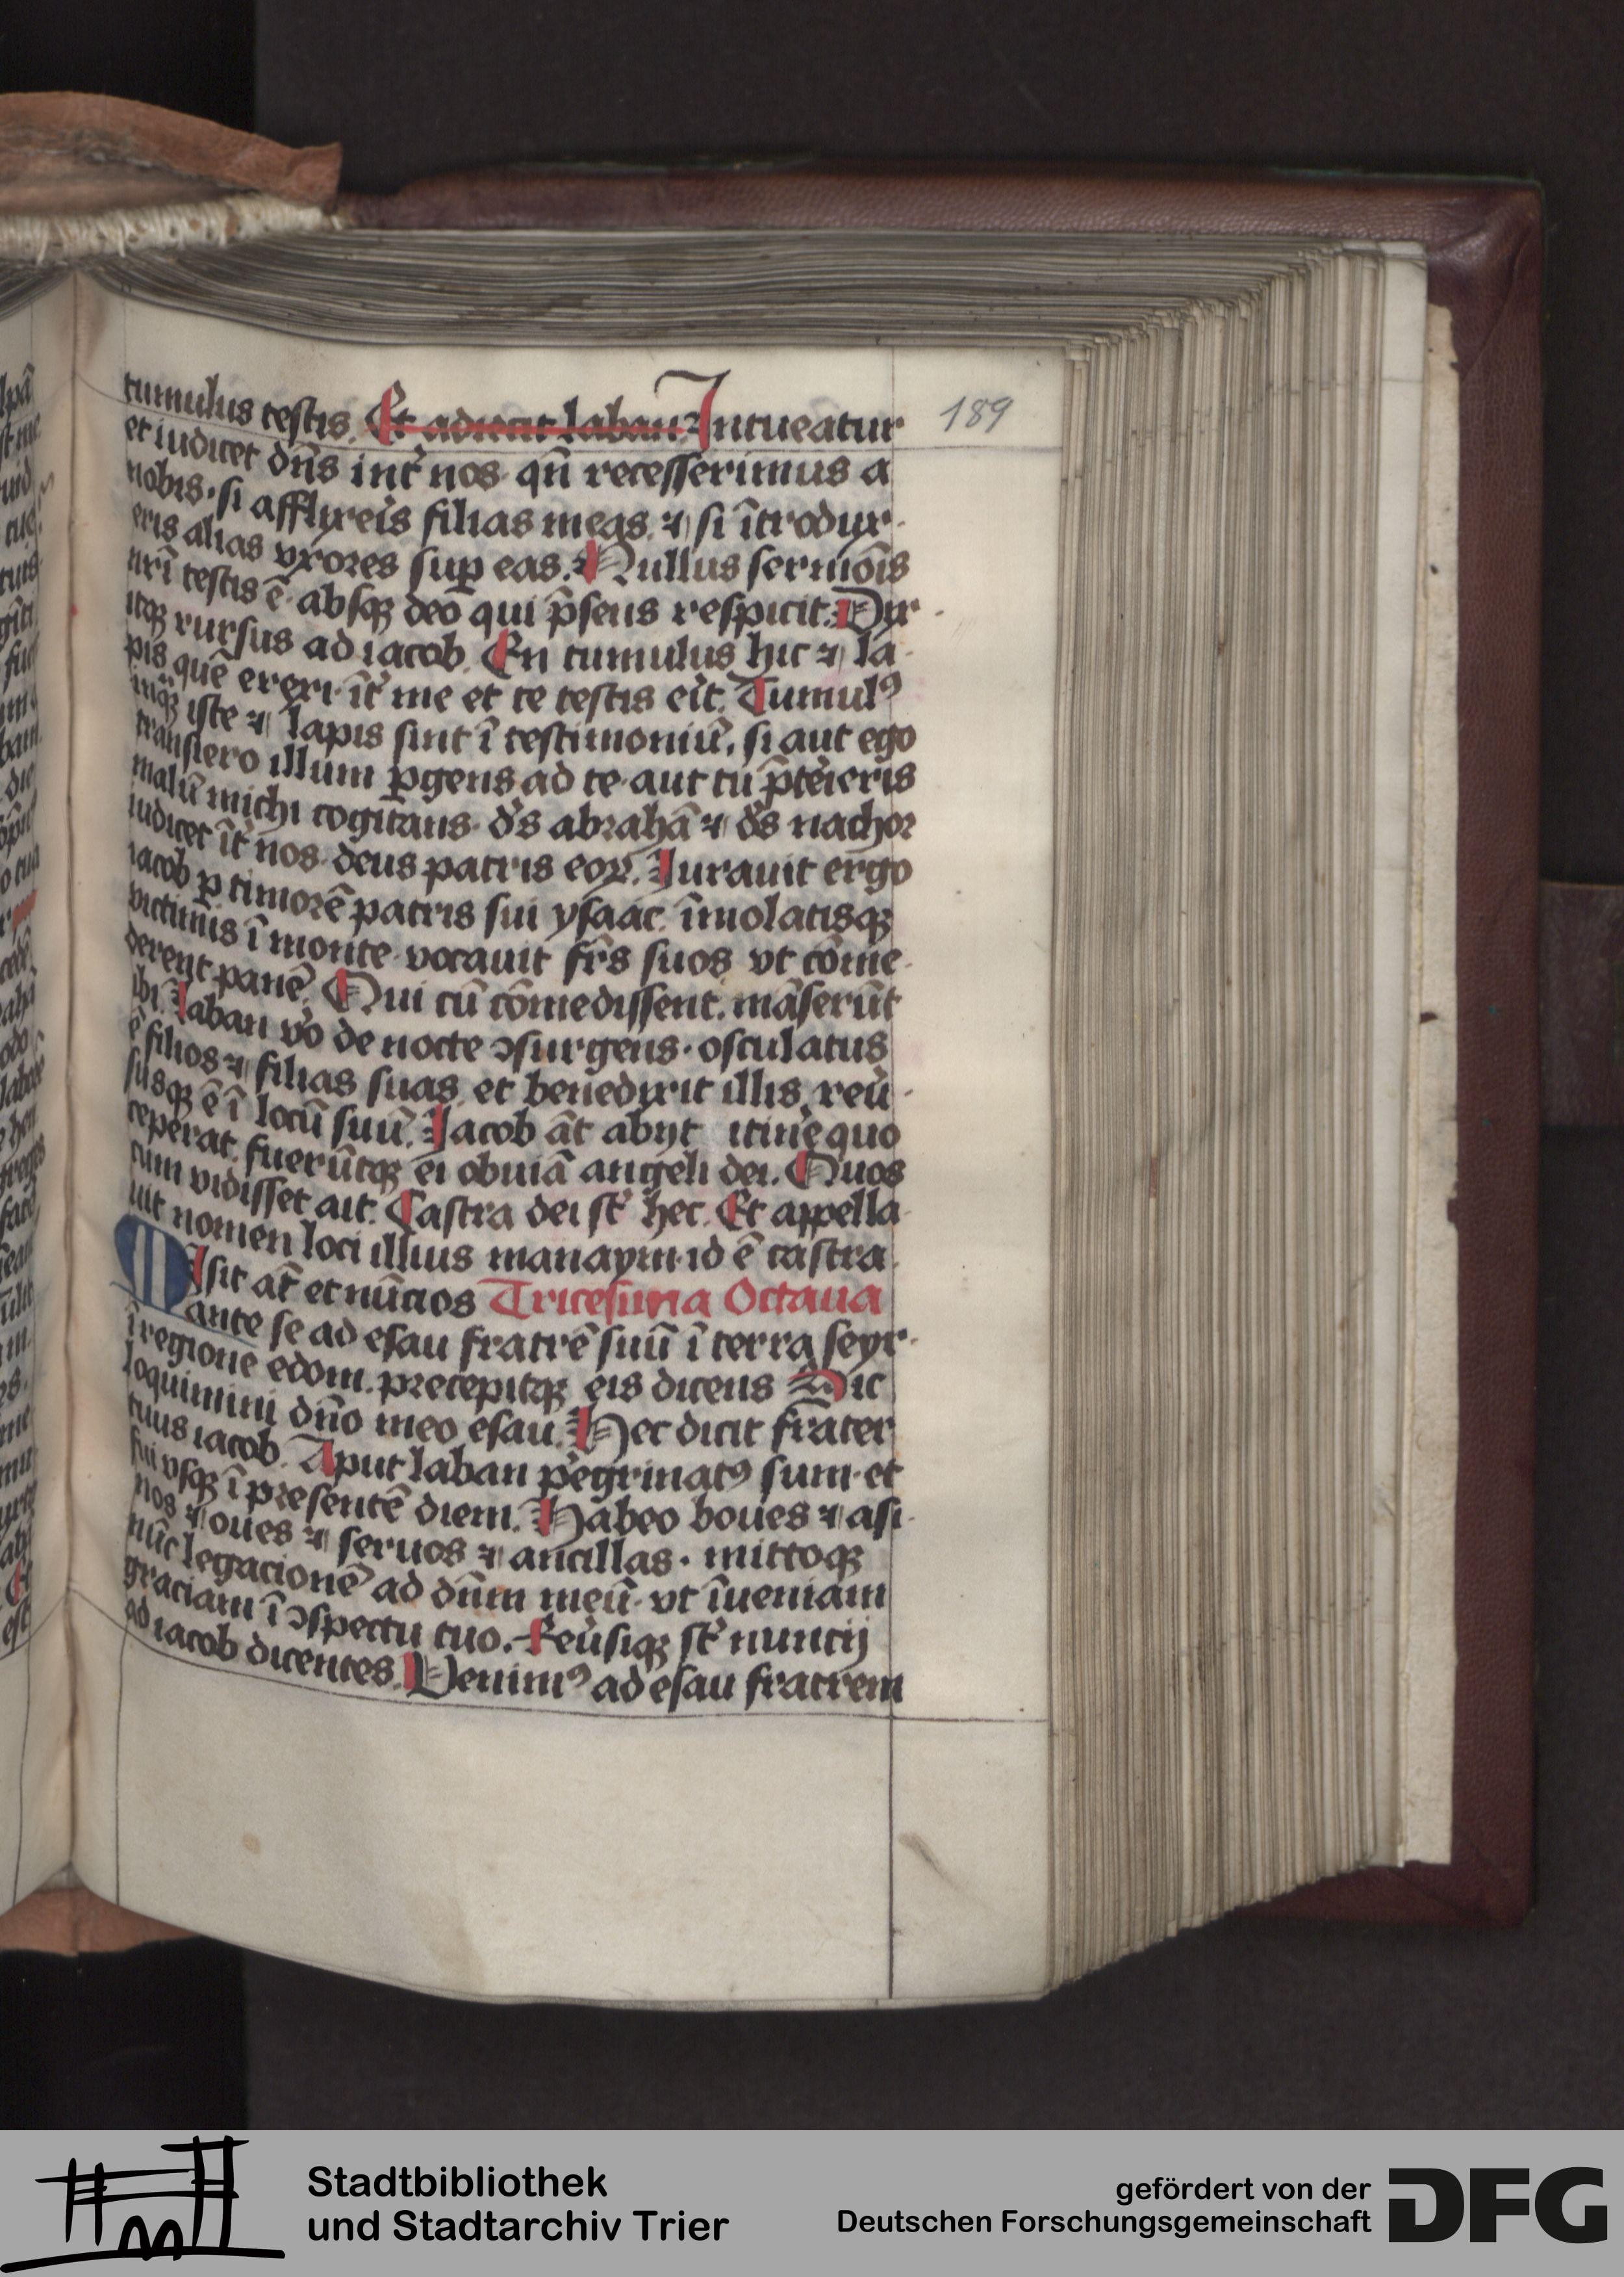 tumulus testis. Et adiecit laban. Intueatur
189
et iudicet dn̄s int̉ nos qn̄ recesserimus a
nobis · si afflixeris filias meas ⁊ si ītrodux
eris alias vxores suꝑ eas. Nullus sermōis
nr̄i testis ē absqꝫ deo qui p̄sens respicit. Dix
itqꝫ rursus ad iacob. En tumulus hic ⁊ la
pis quē erexi īt̉ me et te testis eit. Tumulꝰ
inqꝫ iste ⁊ lapis sint ī testimoniū, si aut ego
transiero illum ꝑgens ad te aut tu p̄teieris
malū michi cogitans. ds̄ abrahā ⁊ ds̄ nachor
iudicet īt̉ nos deus patris eoꝝ. Iurauit ergo
iacob ꝑ timorē patris sui ysaac. īmolatisqꝫ
victimis ī monte vocauit fr̄s suos vt cōme
derent panē. Qui cū cōmedissent. māserūt
ibi. Laban vỏ de nocte ꝯsurgens · osculatus
ē filios ⁊ filias suas et benedixit illis reủ
susqꝫ ē ī locū suū. Iacob āt abijt itinēe quo
ceperat. fuerūtqꝫ ei obuiā angeli dei. Quos
cum vidisset ait. Castra dei st̄ hec. Et appella
uit nomen loci illius manaym id ē castra
MIsit at̄ et nūcios Tricesima Octaua
ante se ad esau fratrē suū ī terra seyr
ī regione edom. precepitqꝫ eis dicens Sic
loquimini dn̄o meo esau. Hec dicit frater
tuus iacob. Aput laban pẻgrinatꝰ sum et
fui vsqꝫ ī presentē diem. Habeo boues ⁊ asi
nos ⁊ oues ⁊ seruos ⁊ ancillas · mittoqꝫ
nūc legacionē ad dn̄m meū vt īueniam
graciam ī ꝯspectu tuo. Reủsiqꝫ st̄ nuncij
ad iacob dicentes. Venimꝰ ad esau fratrem
Stadtbibliothek
und Stadtarchiv Trier
gefördert von der
Deutschen Forschungsgemeinschaft
DFG